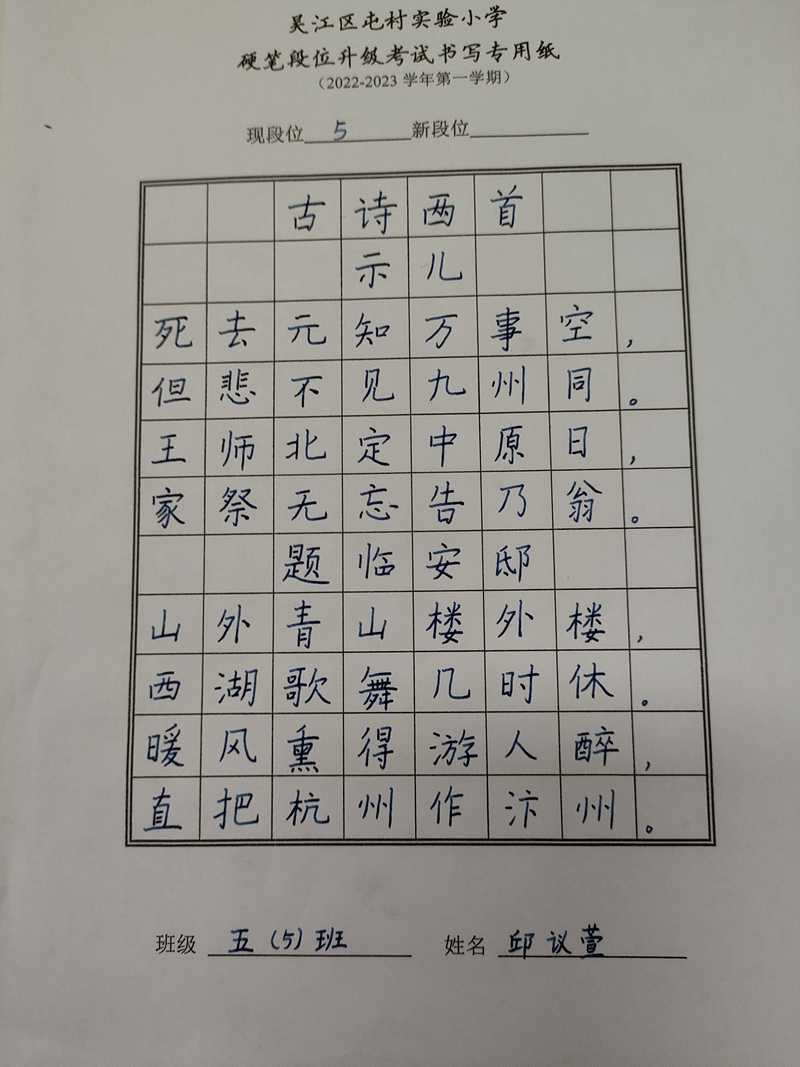 吴江区屯村实验小学
硬笔段位升级考试书写专用纸
（2022-2023 学年第一学期）
现段位 5 新段位
古诗两首
示儿
死去元知万事空，
但悲不见九州同。
王师北定中原日，
家祭无忘告乃翁。
题临安邸
山外青山楼外楼，
西湖歌舞几时休。
暖风熏得游人醉，
直把杭州作汴州。
班级 五（5）班 姓名 邱议萱